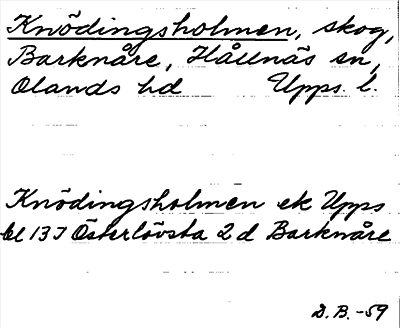 Knödingsholmen, skog,
Barknåre, Hållnäs sn,
Olands hd Upps. l.
Knödingsholmen ek Upps
bl 137 Österlövsta 2 d Barknåre
D. B. -59